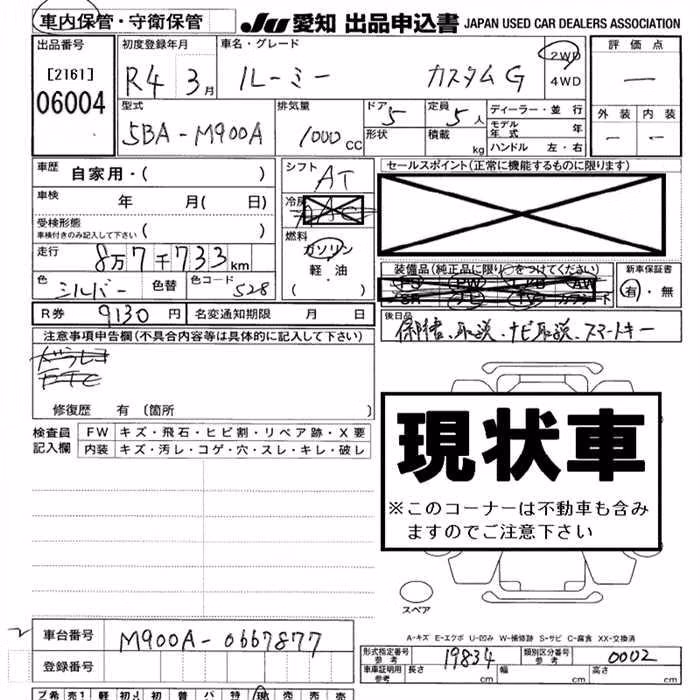 車内保管・守衛保管 JU 愛知 出品申込書 JAPAN USED CAR DEALERS ASSOCIATION
出品番号 初度登録年月 車名・グレード 2WD 4WD 評価点
[2161] 06004 R4 3月 ルーミー カスタムG ー
型式 排気量 ドア 5 定員 5人 ディーラー・並行 外装 内装
5BA-M900A 1000cc 形状 積載 kg モデル年式 年 ー ー
ハンドル 左・右
車歴 自家用・( ) シフト AT セールスポイント(正常に機能するものに限ります)
車検 年 月( 日) 冷房
受検形態 車検付きのみ記入して下さい ( ) 燃料 ガソリン 軽油 ・ ( )
走行 8万7千733km 装備品(純正品に限り○をつけてください) 新車保証書
色 シルバー 色替 色コード S28 PS PW AW SR TV 有・無
R券 9130円 名変通知期限 月 日 後日品
注意事項申告欄(不具合内容等は具体的に記入して下さい) 保証書、取説、ナビ取説、スマートキー
ETC
修復歴 有 (箇所 )
検査員記入欄 FW キズ・飛石・ヒビ割・リペア跡・X要
内装 キズ・汚レ・コゲ・穴・スレ・キレ・破レ
現状車
※このコーナーは不動車も含み
ますのでご注意下さい
スペア
A-キズ E-エクボ U-凹み W-補修跡 S-サビ C-腐食 XX-交換済
2 車台番号 M900A-0667877 形式指定番号 参考 19834 類別区分番号 参考 0002
登録番号 車車証明用 参考 長さ cm 幅 cm 高さ cm